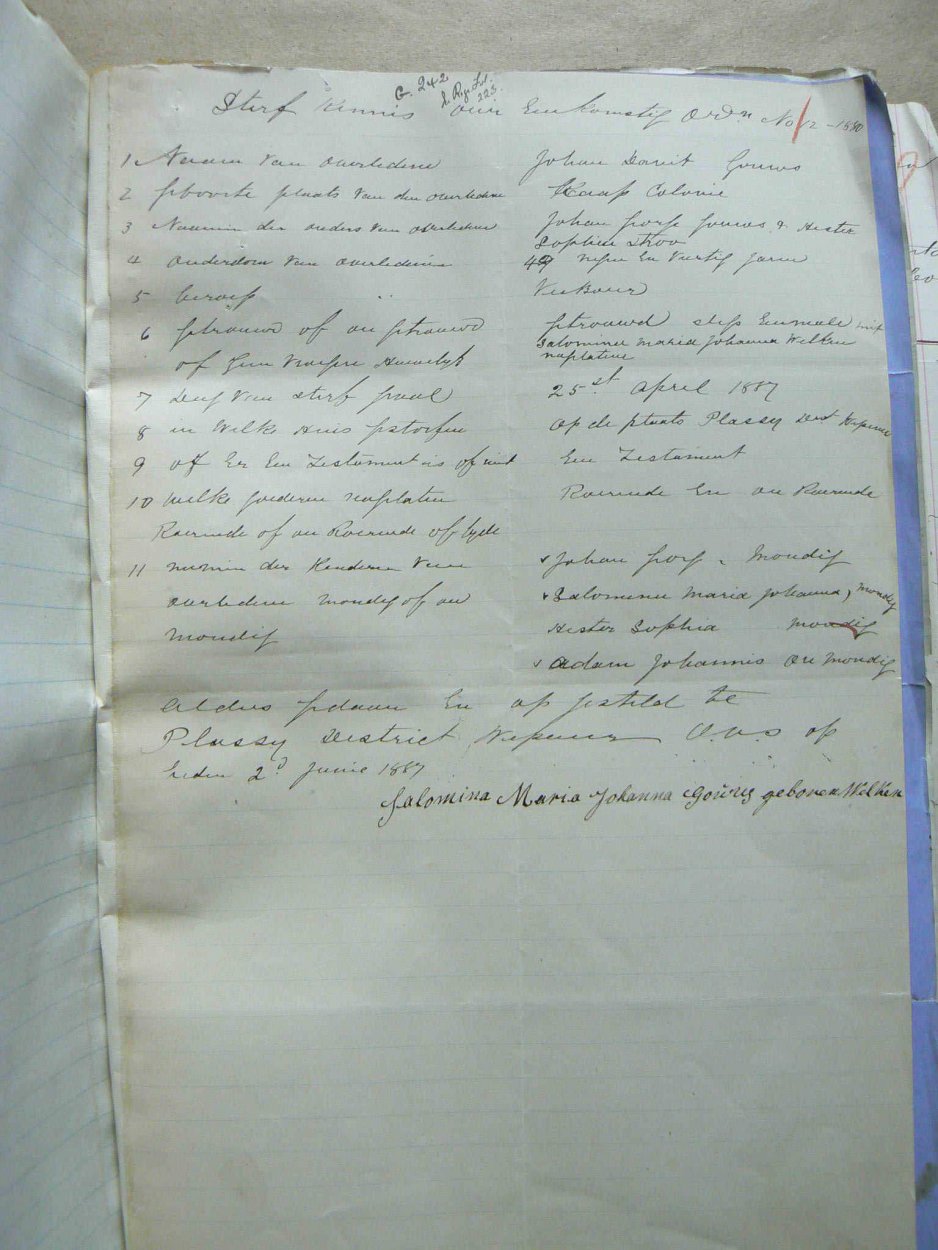 G. 242
223.
Sterf Kennis over Een komstig Ordn No 12 - 1880
1 Naam van overledene Johan Davit Gouws
2 gboorte plaats van den overledene Kaap Colonie
3 Naamen der ouders van overledene Johan Gorg Gouws & Hester Sophia
4 ouderdom van overledene 49 negen En Vertig Jaren
5 beroep Veeboer
6 getrouwd of on getrouwd getrouwd slegs Eenmaal met
Salomina Maria Johanna Wilken
of Een Vroegere Huwelyk naglatene
7 dag van sterf geval 25st April 1887
8 in Welke Huis gestorfen op de plaats Plassy Dist Wepener
9 of Er Een Testament is of niet Een Testament
10 Welke goederen naglaten Roerende En on Roerende
Roerende of on Roerende of byde
11 namen der Kenderen van Johan Gorg Mondig
overledene mondig of on Salomina Maria Johanna, mondig
mondig Hester Sophia Mondig
Adam Johannis on Mondig
Aldus gedaan En op gesteld te
Plassy District Wepener O.V.S op
heden 2d Junie 1887
Salomina Maria Johanna Gouws geboren Wilken